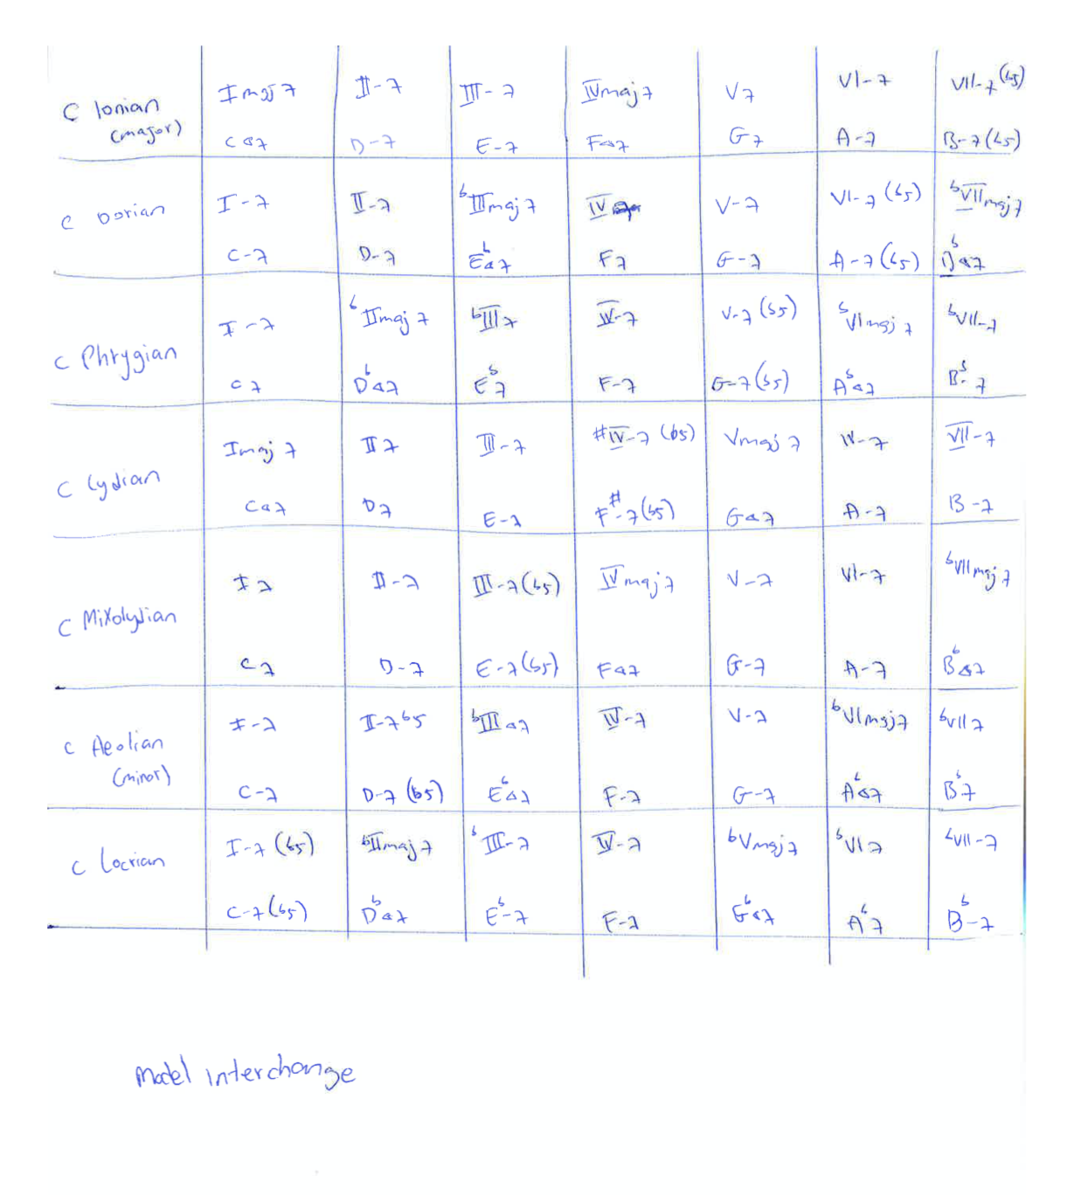 C Ionian (major) Imaj7 II-7 III-7 IVmaj7 V7 VI-7 VII-7(b5)
CΔ7 D-7 E-7 FΔ7 G7 A-7 B-7(b5)
C Dorian I-7 II-7 bIIImaj7 IV V-7 VI-7(b5) bVIImaj7
C-7 D-7 EbΔ7 F7 G-7 A-7(b5) bΔ7
C Phrygian I-7 bIImaj7 bIII7 IV-7 V-7(b5) bVImaj7 bVII-7
C7 DbΔ7 Eb7 F-7 G-7(b5) AbΔ7 Bb-7
C Lydian Imaj7 II7 III-7 #IV-7(b5) Vmaj7 -7 VII-7
CΔ7 D7 E-7 F#-7(b5) GΔ7 A-7 B-7
C Mixolydian I7 II-7 III-7(b5) IVmaj7 V-7 VI-7 bVIImaj7
C7 D-7 E-7(b5) FΔ7 G-7 A-7 BbΔ7
C Aeolian (minor) I-7 II-7b5 bIIIΔ7 IV-7 V-7 bVImaj7 bVII7
C-7 D-7(b5) EbΔ7 F-7 G-7 AbΔ7 Bb7
C Locrian I-7(b5) bIImaj7 bIII-7 IV-7 bVmaj7 bVI7 bVII-7
C-7(b5) DbΔ7 Eb-7 F-7 GbΔ7 Ab7 Bb-7
model interchange